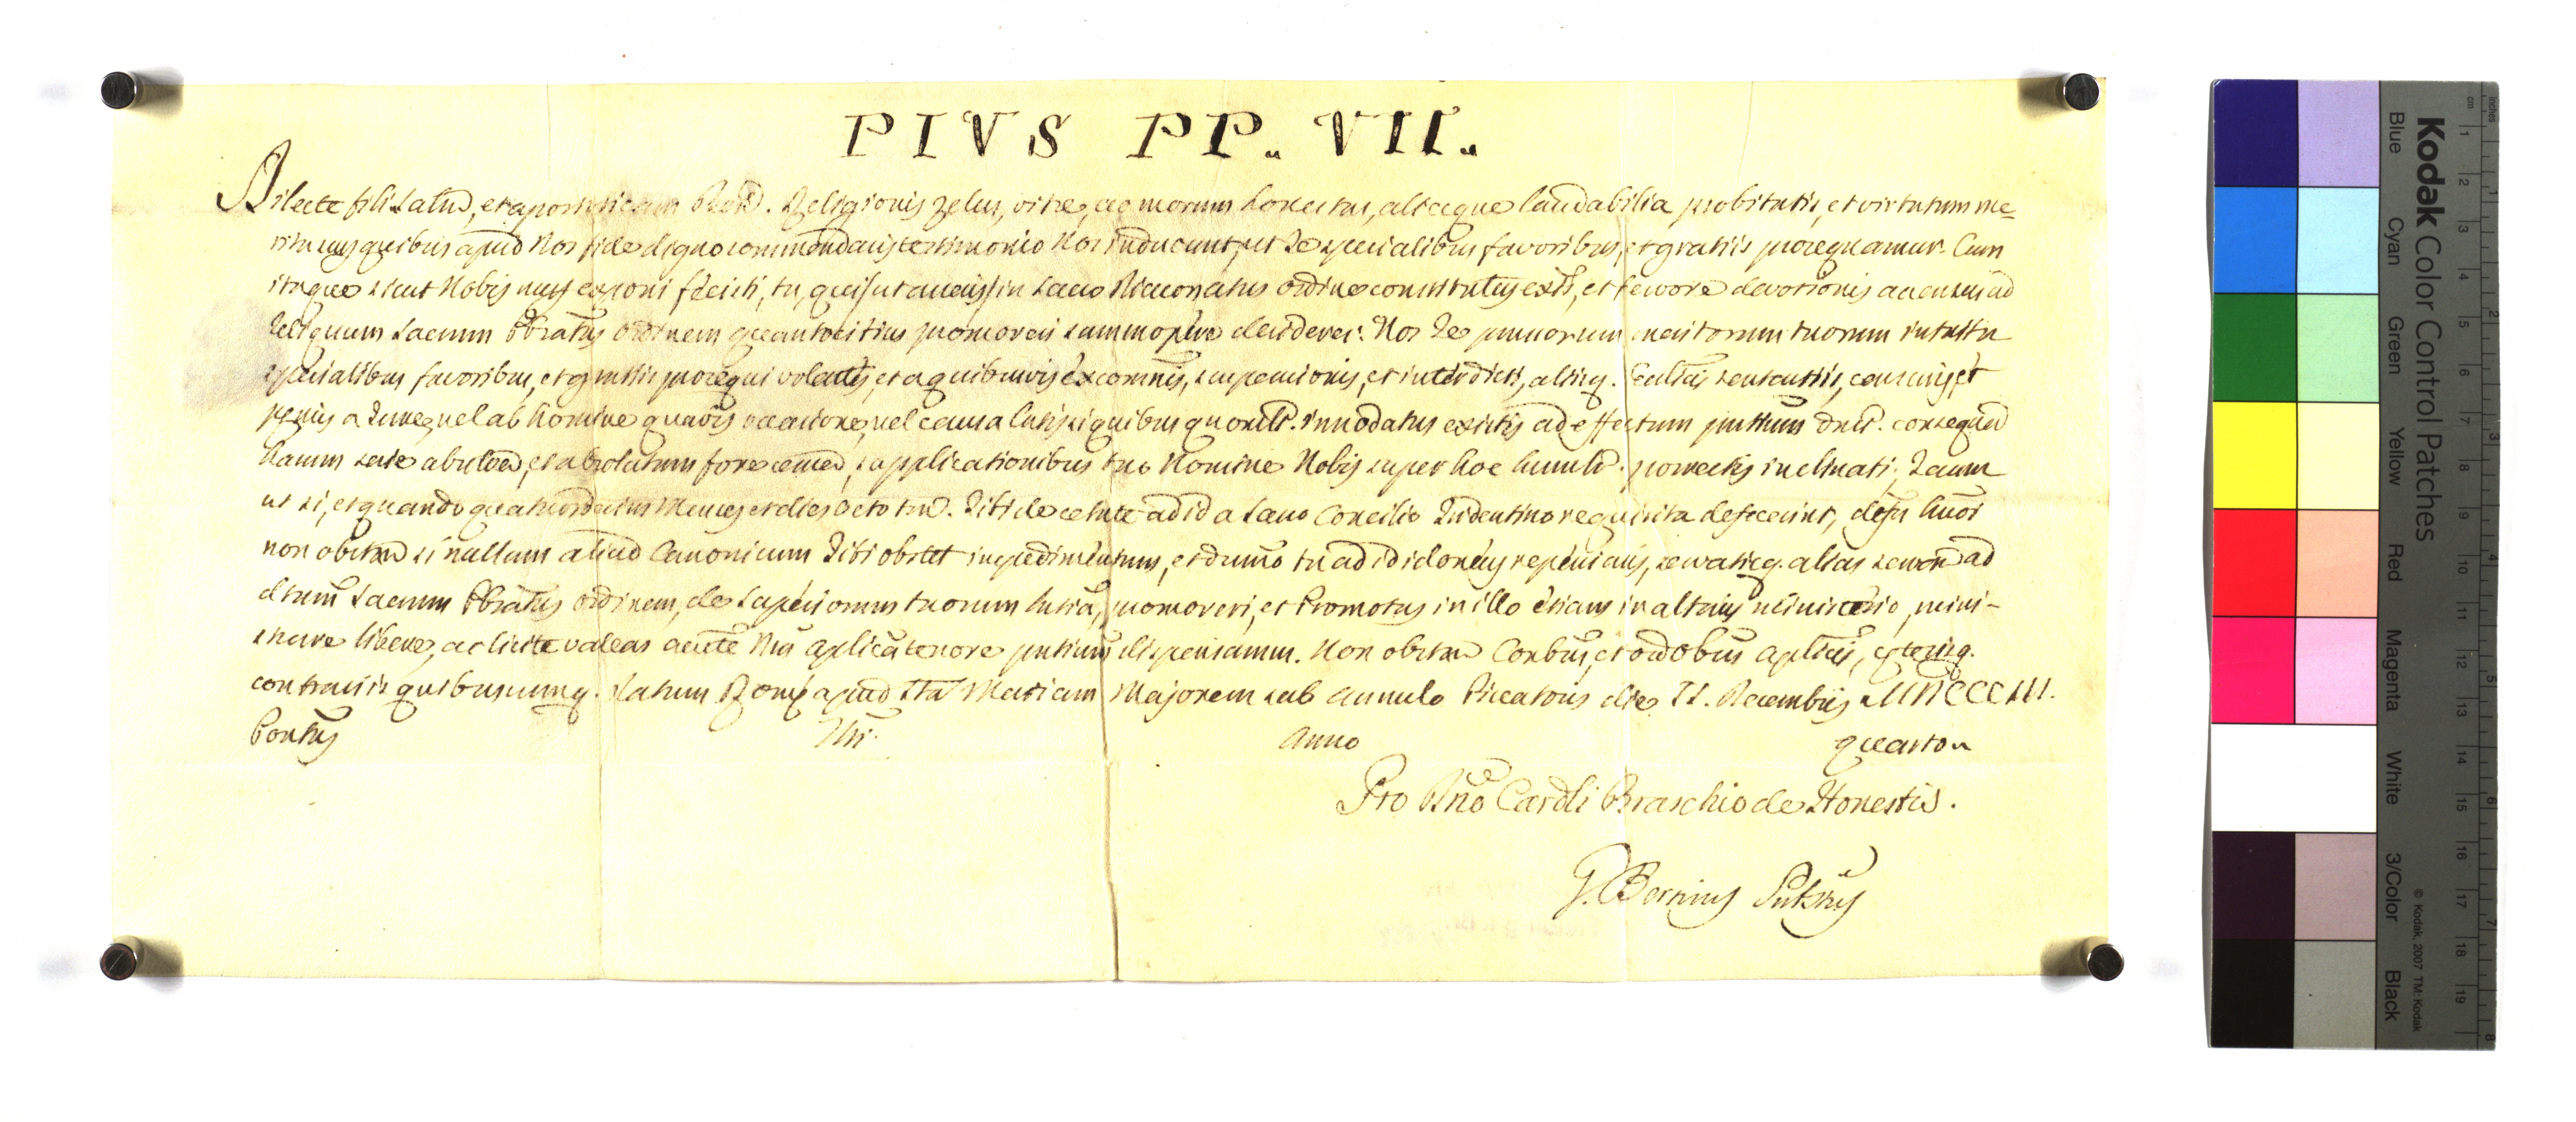 PIVS PP. VII.
Dilecte fili Salut, et apostolicam Bened. Religionis zelus, vitæ, ac morum honestas, aliaque laudabilia probitatis, et virtutum me-
rita cuy quibus apud Nos fide digno commendaris testimonio Nos inducunt, ut Te specialibus favoribus, et gratiis prosequamur. Cum
itaque sicut Nobis nuper exponi fecisti, tu, qui in Sacro Diaconatus ordine constitutus existis, et fervore devotionis accensus ad
reliquum Sacrum Pbratus ordinem quantocitius promoveri summopere desideres. Nos Te præmissorum meritorum tuorum intuitu
specialibus favoribus, et gratiis prosequi volentes, et a quibusvis excomnis, suspensionis, et interdicti, aliisq. Ecclicis sententiis, censuris, et
pænis a Jure, vel ab homine quavis occasione, vel causa latis, si quibus quomlt. innodatus existis ad effectum pntium dmlt. consequend
harum serie absolven, et absolutum fore censen, supplicationibus tuo Nomine Nobis super hoc humilr. porrectis inclinati, Tecum
ut si, et quando quatuordecim Menses et dies octo tm. Tibi de ætate ad id a Sacro Concilio Tridentino requisita defecerint, defu hmoi
non obstan si nullum aliud Canonicum Tibi obstet impedimentum, et dummo tu ad id idoneus reperiaris, servatisq. alias servan ad
dtum Sacrum Pbratus ordinem, de Superiorum tuorum lintia, promoveri, et Promotus in illo etiam in altaris ministerio, mini-
strare libere, ac licite valeas aucte Nra Aplica tenore pntium dispensamus. Non obstan Conbus, et ordobus Aplicis, cæterisq.
contrariis quibuscumq. Datum Romæ apud Sta Mariam Majorem sub Annulo Piscatoris die II. Decembris MDCCCIII.
Pontus Nri. Anno quarto
Pro Dno Cardli Braschio de Honestis.
G. Bernius Subtus